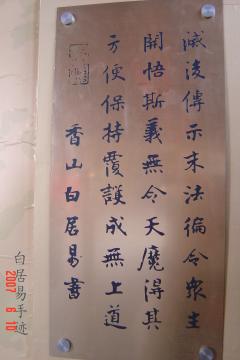 滅後傳示末法徧令衆生
開悟斯義無令天魔得其
方便保持覆護成無上道
香山白居易書
白居易手迹
2007 6 10